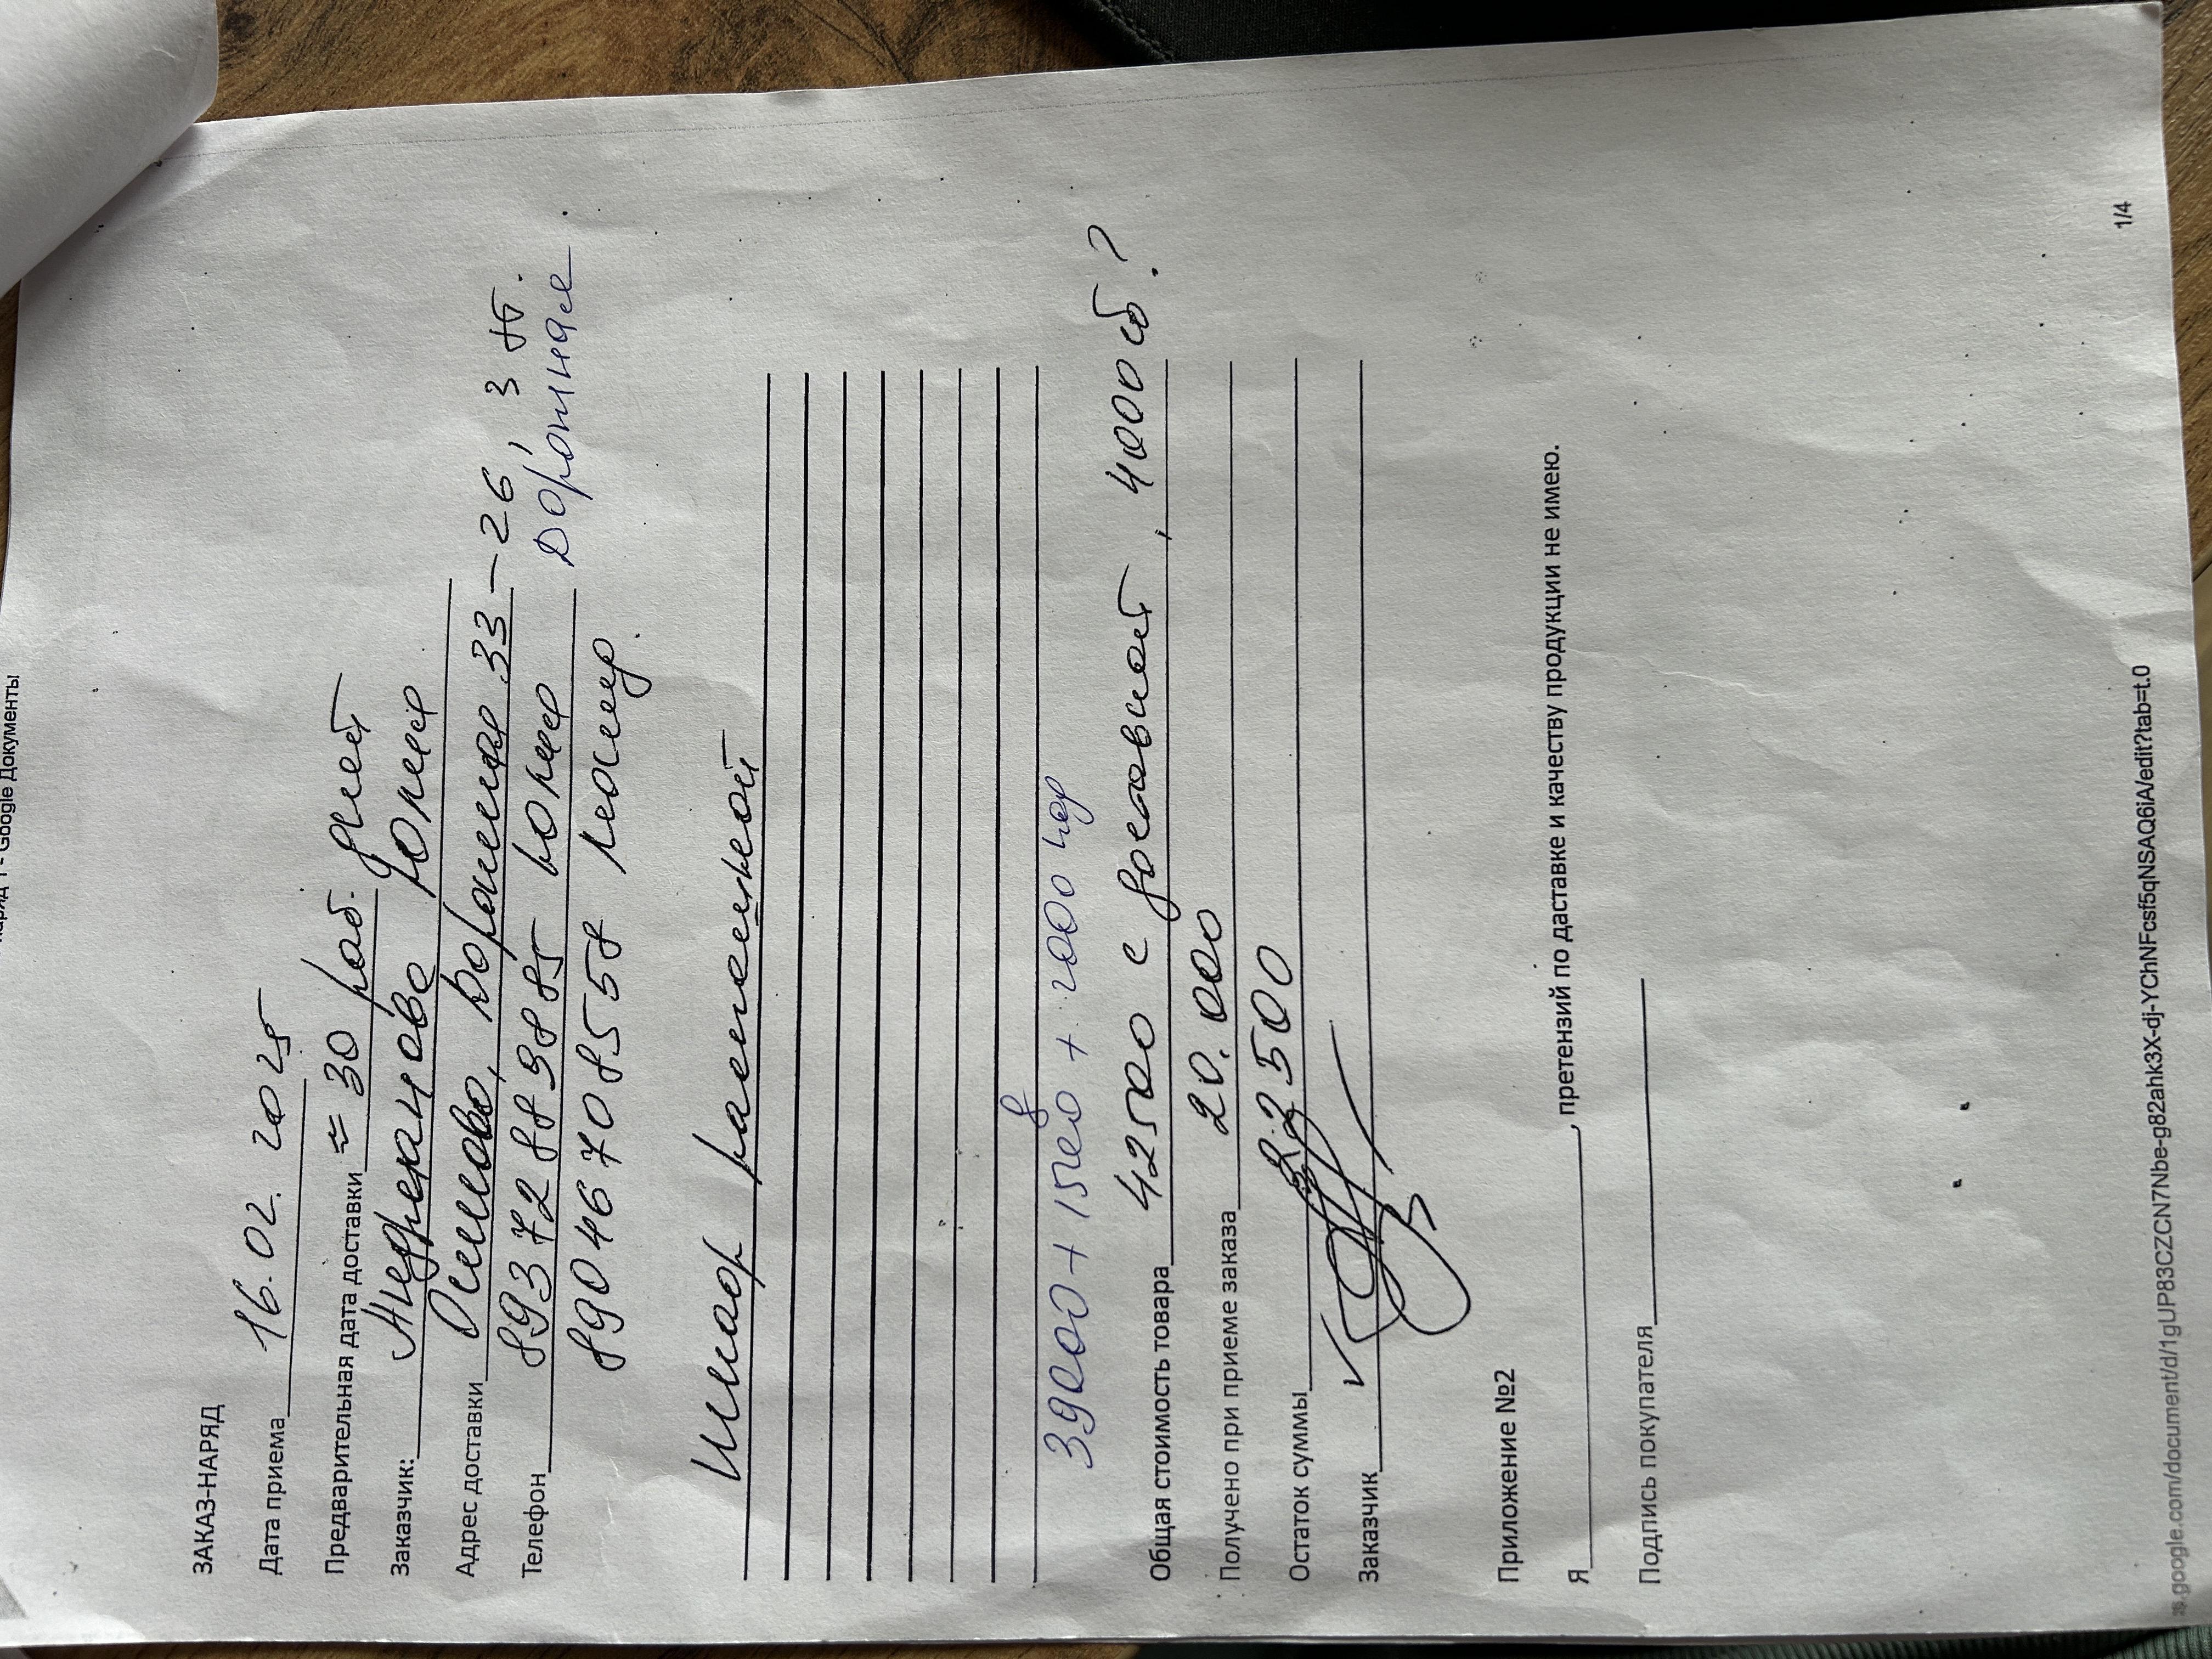 наряд 1 - Google Документы
ЗАКАЗ-НАРЯД
Дата приема 16.02.2025
Предварительная дата доставки ≈ 30 раб. дней
Заказчик: Юлия
Адрес доставки Осиново, Дорожная 33-26, 3 эт.
Телефон 89372889885 Юлия Дорожная
89046708558
Шкаф распашной
8
39000 + 1500 + 2000 под
Общая стоимость товара 42500 с доставкой, 4000 сб?
Получено при приеме заказа 20.000
Остаток суммы 22500
Заказчик
Приложение №2
Я , претензий по даставке и качеству продукции не имею.
Подпись покупателя
1/4
s.google.com/document/d/1gUP83CZCN7Nbe-g82ahk3X-dj-YChNFcsf5qNSAQ6iA/edit?tab=t.0